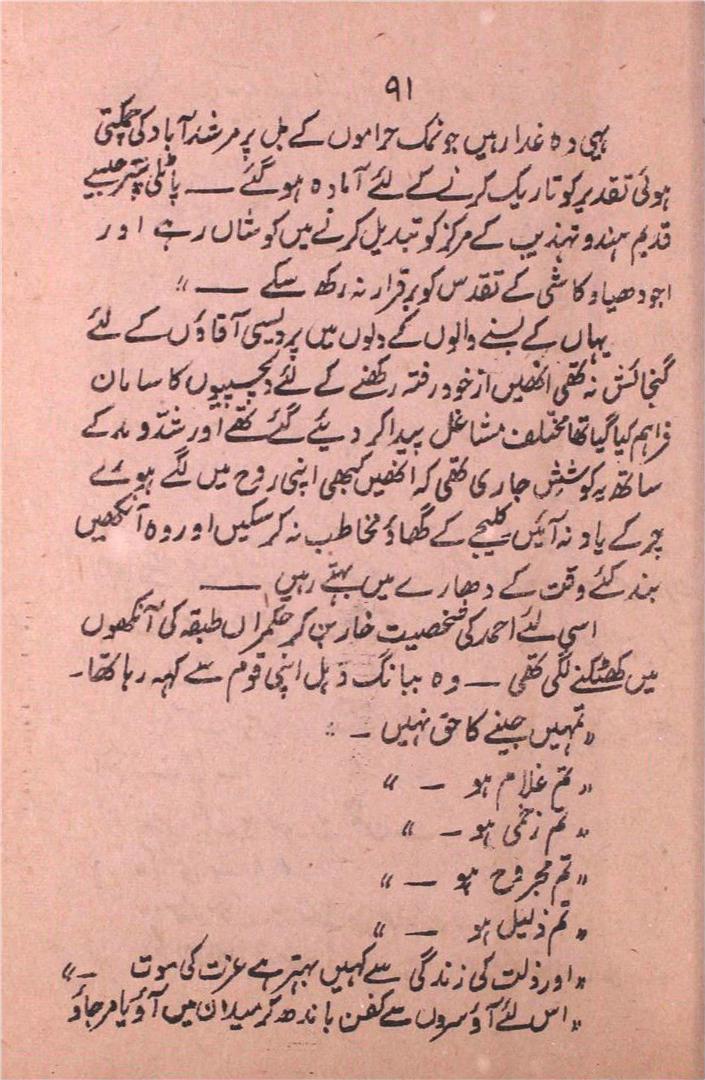 ۹۱
یہی وہ غدار ہیں جو نمک حراموں کے بل پر مرشد آباد کی چمکتی
ہوئی تقدیر کو تاریک کرنے کے لئے آمادہ ہو گئے — پاٹلی پتر جیسے
قدیم ہندو تہذیب کے مرکز کو تبدیل کرنے میں کوشاں رہے اور
اجودھیا و کاشی کے تقدس کو برقرار نہ رکھ سکے — "
یہاں کے بسنے والوں کے دلوں میں پردیسی آقاؤں کے لئے
گنجائش نہ تھی انھیں از خود رفتہ رکھنے کے لئے دلچسپیوں کا سامان
فراہم کیا گیا تھا مختلف مشاغل پیدا کر دیئے گئے تھے اور شدّ و مد کے
ساتھ یہ کوشش جاری تھی کہ انھیں کبھی اپنی روح میں لگے ہوئے
چرکے یاد نہ آئیں کلیجے کے گھاؤ مخاطب نہ کر سکیں اور وہ آنکھیں
بند کئے وقت کے دھارے میں بہتے رہیں —
اسی لئے احمد کی شخصیت خار بن کر حکمراں طبقہ کی آنکھوں
میں کھٹکنے لگی تھی — وہ ببانگ دہل اپنی قوم سے کہہ رہا تھا۔
"تمہیں جینے کا حق نہیں — "
"تم غلام ہو — "
"تم زخمی ہو — "
"تم مجروح ہو — "
"تم ذلیل ہو — "
"اور ذلت کی زندگی سے کہیں بہتر ہے عزت کی موت — "
"اس لئے آؤ سروں سے کفن باندھ کر میدان میں آؤ یا مر جاؤ